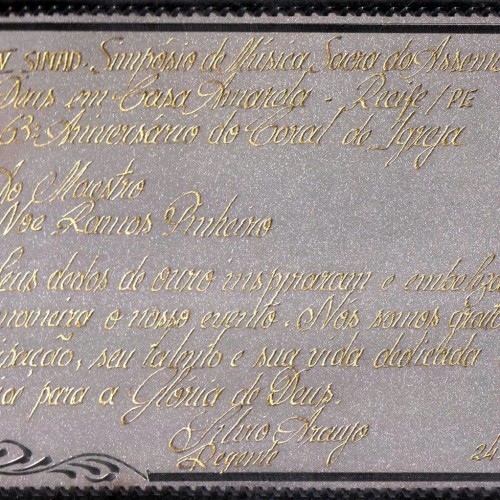 V SIMAD. Simpósio de Música Sacra da Assem
Deus em Casa Amarela - Recife/PE
63º Aniversário do Coral de Igreja
Ao Maestro
Noé Ramos Pinheiro
Seus dedos de ouro inspiraram e embeleza
maneira o nosso evento. Nós somos grato
seu talento e sua vida dedicada
para a Glória de Deus.
Silvio Araujo
Regente
24